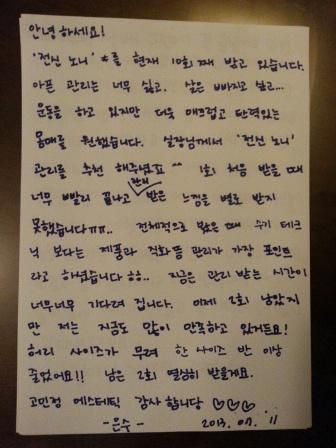 안녕하세요!
'전신 노니'*를 현재 10회째 받고 있습니다.
아픈 관리는 너무 싫고. 살은 빠지고 싶고...
운동을 하고 있지만 더욱 매끄럽고 탄력있는
몸매를 원했습니다. 실장님께서 '전신 노니'
관리를 추천 해주셨죠^^ 1회 처음 받을 때
너무 빨리 끝나고 관리 받은 느낌을 별로 받지
못했습니다ㅠㅠ.. 전체적으로 봤을 때 수기 테크
닉 보다는 제품과 적외등 관리가 가장 포인트
라고 하셨습니다ㅎㅎ.. 지금은 관리 받는 시간이
너무너무 기다려 집니다. 이제 2회 남았지
만 저는 지금도 많이 만족하고 있거든요!
허리 사이즈가 무려 한 사이즈 반 이상
줄었어요!! 남은 2회 열심히 받을게요.
고민정 에스테틱 감사합니다 ♡♡♡
-은수- 2013. 07. 11